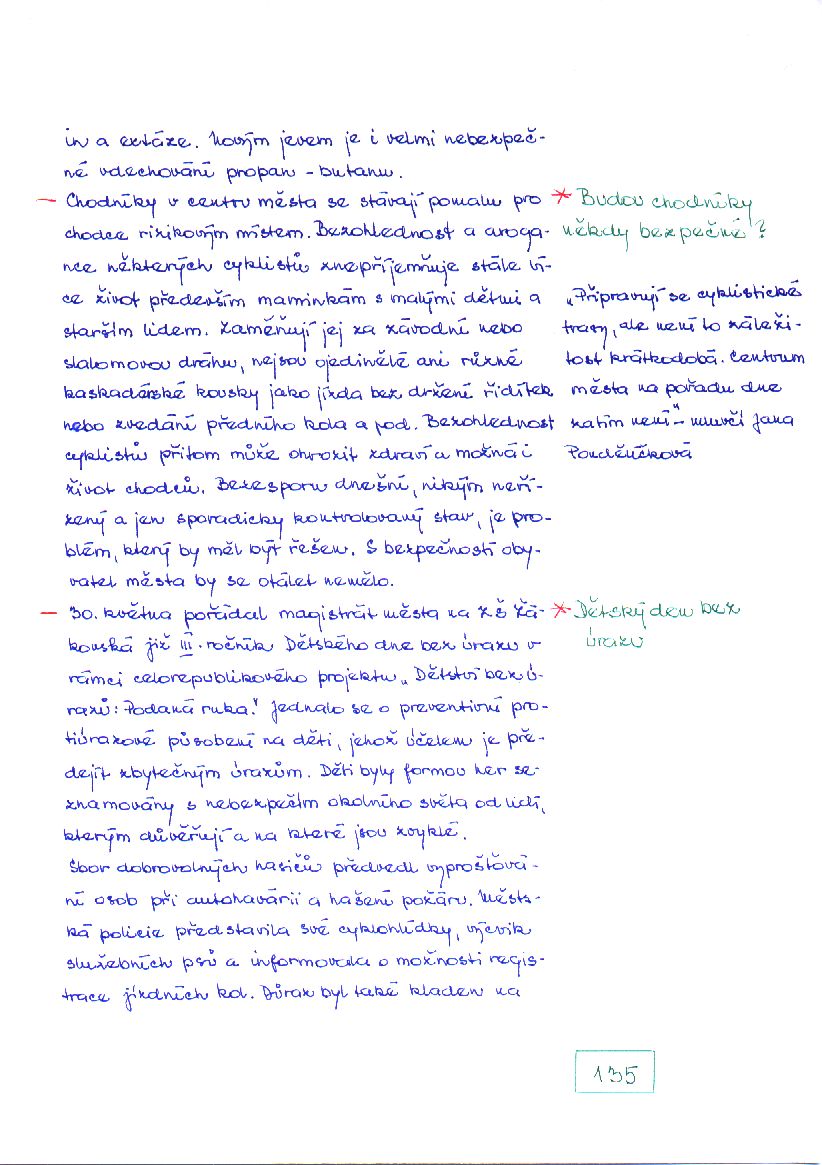 in a extáze. Novým jevem je i velmi nebezpeč-
né vdechování propan - butanu.
— Chodníky v centru města se stávají pomalu pro
chodce rizikovým místem. Bezohlednost a aroga-
nce některých cyklistů znepříjemňuje stále ví-
ce život především maminkám s malými dětmi a
starším lidem. Zaměňují jej za závodní nebo
slalomovou dráhu, nejsou ojedinělé ani různé
kaskadérské kousky jako jízda bez držení řidítek
nebo zvedání předního kola a pod. Bezohlednost
cyklistů přitom může ohrozit zdraví a možná i
život chodců. Bezesporu dnešní, nikým neří-
zený a jen sporadicky kontrolovaný stav, je pro-
blém, který by měl být řešen. S bezpečností oby-
vatel města by se otálet nemělo.
— 30. května pořádal magistrát města na ZŠ Žá-
kovská již III. ročník Dětského dne bez úrazu v
rámci celorepublikového projektu „Dětství bez ú-
razů: Podaná ruka". Jednalo se o preventivní pro-
tiúrazové působení na děti, jehož účelem je pře-
dejít zbytečným úrazům. Děti byly formou her se-
znamovány s nebezpečím okolního světa od lidí,
kterým důvěřují a na které jsou zvyklé.
Sbor dobrovolných hasičů předvedl vyprošťová-
ní osob při autohavárii a hašení požáru. Městs-
ká policie představila své cyklohlídky, výcvik
služebních psů a informovala o možnosti regis-
trace jízdních kol. Důraz byl také kladen na
* Budou chodníky
někdy bezpečné?
„Připravují se cyklistické
trasy, ale není to záleži-
tost krátkodobá. Centrum
města na pořadu dne
zatím není" - mluvčí Jana
Pondělíčková
* Dětský den bez
úrazu
135